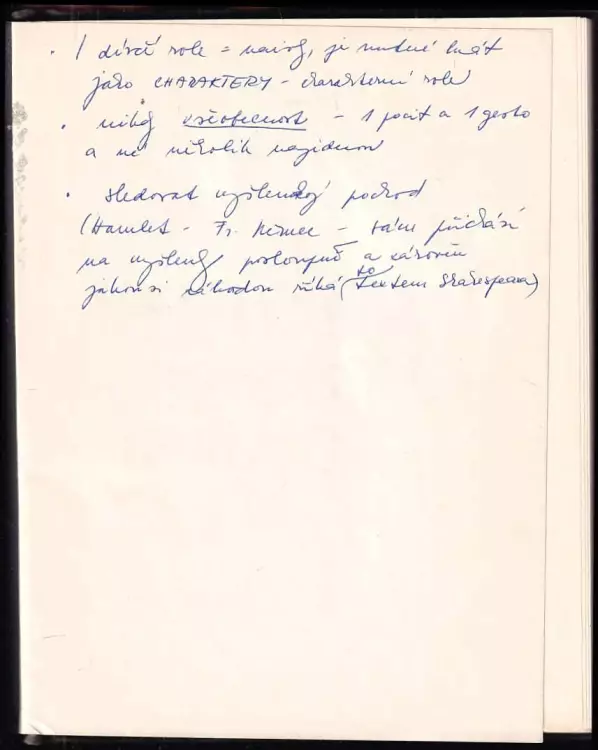 · I dívčí role = naivky, je nutné hrát
jako CHARAKTERY - charakterní role
· nikdy všeobecnost - 1 pocit a 1 gesto
a ne několik najednou
· sledovat myšlenkový pochod
(Hamlet - Fr. Němec - sám přichází
na myšlenky postupně a zároveň
jakoby náhodou říká (to textem Shakespeara)